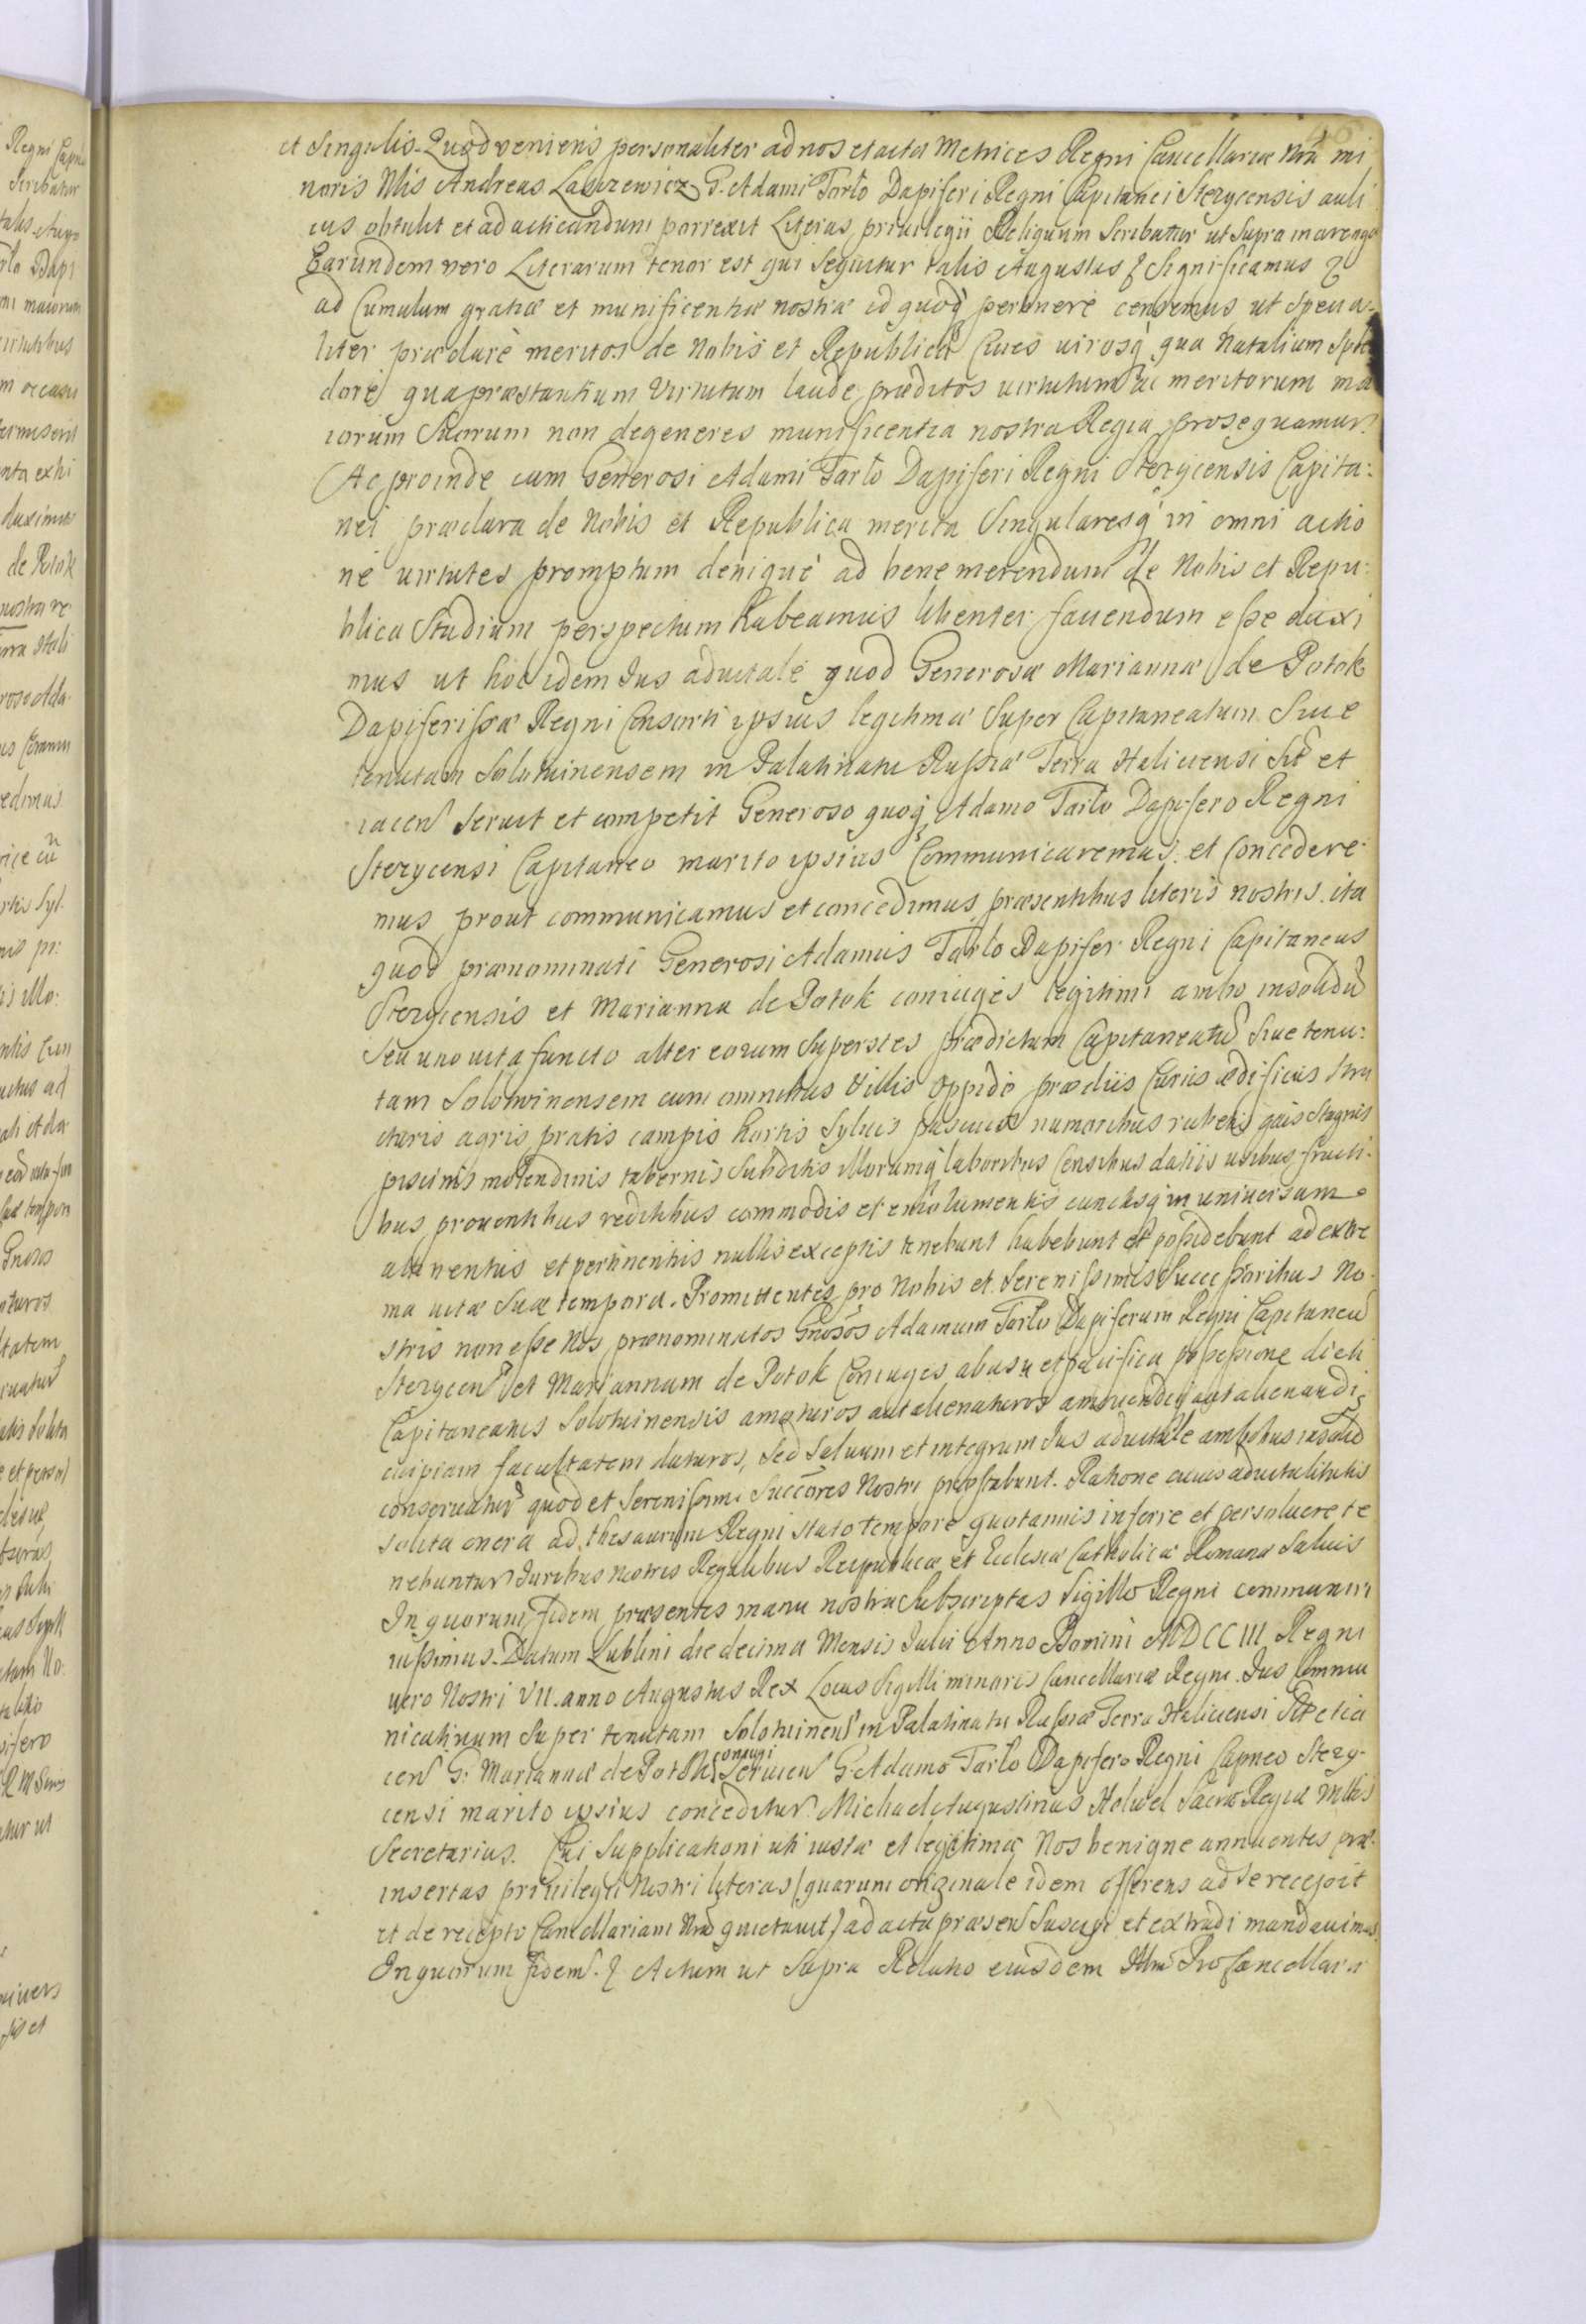 et Singulis. Quod veniens personaliter ad nos et acta Metrices Regni Cancellariæ Nræ mi
noris Nlis Andreas Laszewicz G. Adami Tarło Dapiferi Regni Capitanei Stezycensis auli
cus obtulit et ad acticandum porrexit Literas privilegii Reliquum Scribatur ut Supra in arenga
Earundem vero Literarum tenor est qui Sequitur talis Augustus & Significamus &
ad Cumulum gratiæ et munificentiæ nostræ id quoq pertinere censemus ut Specia-
liter præclare meritos de Nobis et Republica Cives virosq qua Natalium Splen
dore qua præstantium Virtutum laude præditos virtutum ac meritorum ma
iorum Suorum non degeneres munificentia nostra Regia prosequamur.
Ac proinde cum Generosi Adami Tarło Dapiferi Regni Stezycensis Capita:
nei præclara de Nobis et Republica merita Singularesq in omni actio
ne virtutes promptum denique ad bene merendum de Nobis et Repu:
blica Studium perspectum habeamus libenter favendum esse duxi
mus ut hoc idem Jus advitale quod Generosæ Mariannæ de Potok
Dapiferissæ Regni Consorti ipsius legitimæ Super Capitaneatum Sive
tenutam Solotwinensem in Palatinatu Russiæ Terra Haliciensi Sit et
iacen Servit et competit Generoso quoq Adamo Tarło Dapifero Regni
Stezycensi Capitaneo marito ipsius Communicaremus et Concedere
mus prout communicamus et concedimus præsentibus literis nostris. ita
quod prænominati Generosi Adamus Tarło Dapifer Regni Capitaneus
Stezycensis et Marianna de Potok coniuges legitimi ambo insolidu
Seu uno vita functo alter eorum Superstes prædictum Capitaneatu Sive tenu:
tam Solotwinensem cum omnibus Villis Oppido prædiis Curiis ædificiis Stru
cturis agris pratis campis hortis Sylvis pascuis nemoribus rubetis gais Stagnis
piscinis molendinis tabernis Subditis illorumq laboribus Censibus datiis usibus fructi-
bus proventibus reditibus commodis et emolumentis cunctisq in universum
attinentiis et pertinentiis nullis exceptis tenebunt habebunt et possidebunt ad extre
ma vitæ Suæ tempora. Promittentes pro Nobis et Serenissimis Successoribus No
stris non esse Nos prænominatos Gnosos Adamum Tarło Dapiferum Regni Capitaneu
Stezycen et Mariannam de Potok Coniuges ab usu et pacifica possessione dicti
Capitaneatus Solotwinensis amoturos aut alienaturos amovendiq aut alienandi
cuipiam facultatem daturos, Sed Salvum et integrum Jus advitale ambobus insolid
conservaturos quod et Serenissimi Succores Nostri præstabunt. Ratione cuius advitalitatis
solita onera ad Thesaurum Regni stato tempore quotannis inferre et persolvere te
nebuntur Juribus nostris Regalibus Reipublicæ et Ecclesiæ Catholicæ Romanæ Salvis
In quorum fidem præsentes manu nostra Subscriptas Sigillo Regni communiri
iussimus. Datum Lublini die decima Mensis Julii Anno Domini MDCCIII Regni
vero Nostri VII. anno Augustus Rex Locus Sigilli minoris Cancellariæ Regni. Jus Commu
nicativum Super tenutam Solotwinen in Palatinatu Russiæ Terra Haliciensi
cen G: Mariannæ de Potok coniugi Servien G. Adamo Tarło Dapifero Regni Capneo Stezy-
censi marito ipsius conceditur. Michael Augustinus Holwel Sacræ Regiæ Mttis
Secretarius. Cui Supplicationi uti iustæ et legitimæ Nos benigne annuentes præ-
insertas privilegii Nostri literas (quarum originale idem offerens ad se recepit
et de recepto Cancellariam Nram quietavit) ad acta præsen Suscipi et extradi mandavimus.
In quorum fidem. & Actum ut Supra Relatio eiusdem Illmi Procancellarii